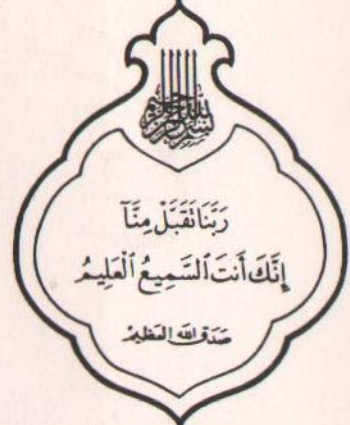 بسم الله الرحمن الرحيم
رَبَّنَا تَقَبَّلْ مِنَّآ
إِنَّكَ أَنتَ ٱلسَّمِيعُ ٱلْعَلِيمُ
صدق الله العظيم